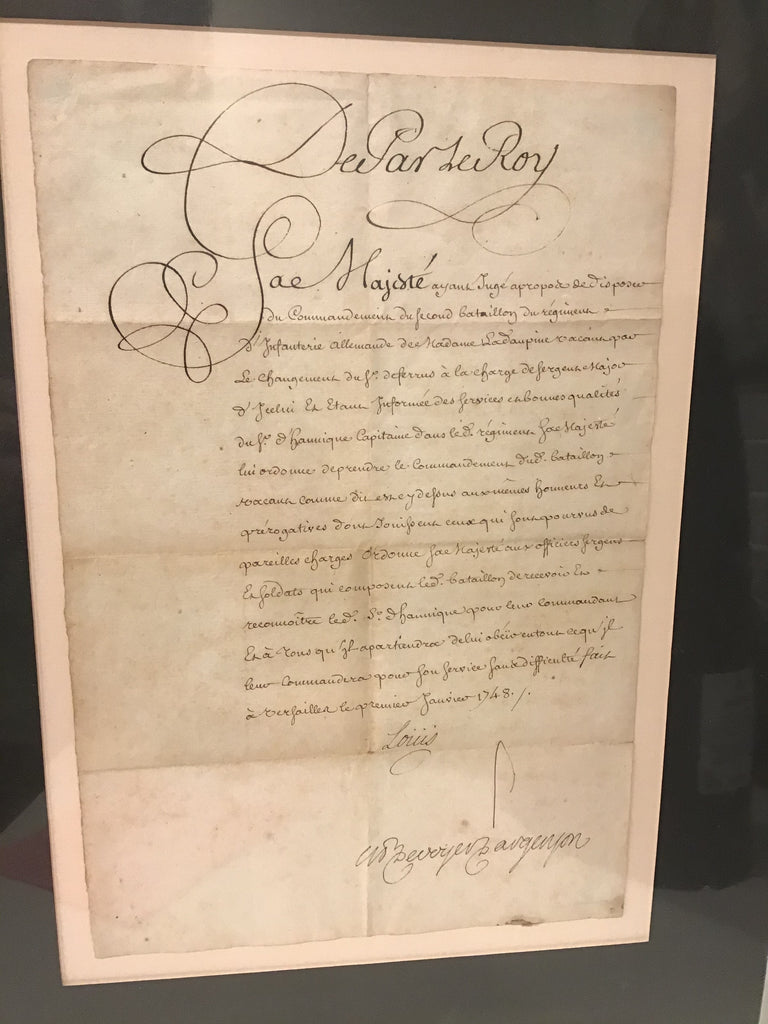 De Par Le Roy
Sa Majesté ayant Jugé apropos de disposer
du Commandement du second bataillon du régiment
d'Infanterie allemande de Madame La daupine vacant par
Le Changement du Sr. deferrus à la charge de sergent Major
d'Jcelui Et Etant Jnformée des services et bonnes qualités
du Sr. d'hannique Capitaine dans led. régiment Sa Majesté
lui ordonne de prendre le Commandement dud. bataillon
vacant comme dit est cy dessus aux mêmes honneurs Et
prérogatives dont Jouissent ceux qui sont pourvus de
pareilles charges Ordonne Sa Majesté aux officiers sergens
Et soldats qui composent led. bataillon de recevoir Et
reconnoître led. Sr. d'hannique pour leur commandant
Et à Tous qu'Jl apartiendra de lui obéir en tout ce qu'Jl
leur Commandera pour son service sans difficulté fait
à Versailles le premier Janvier 1748 ./.
Louis
De Voyer Dargenson